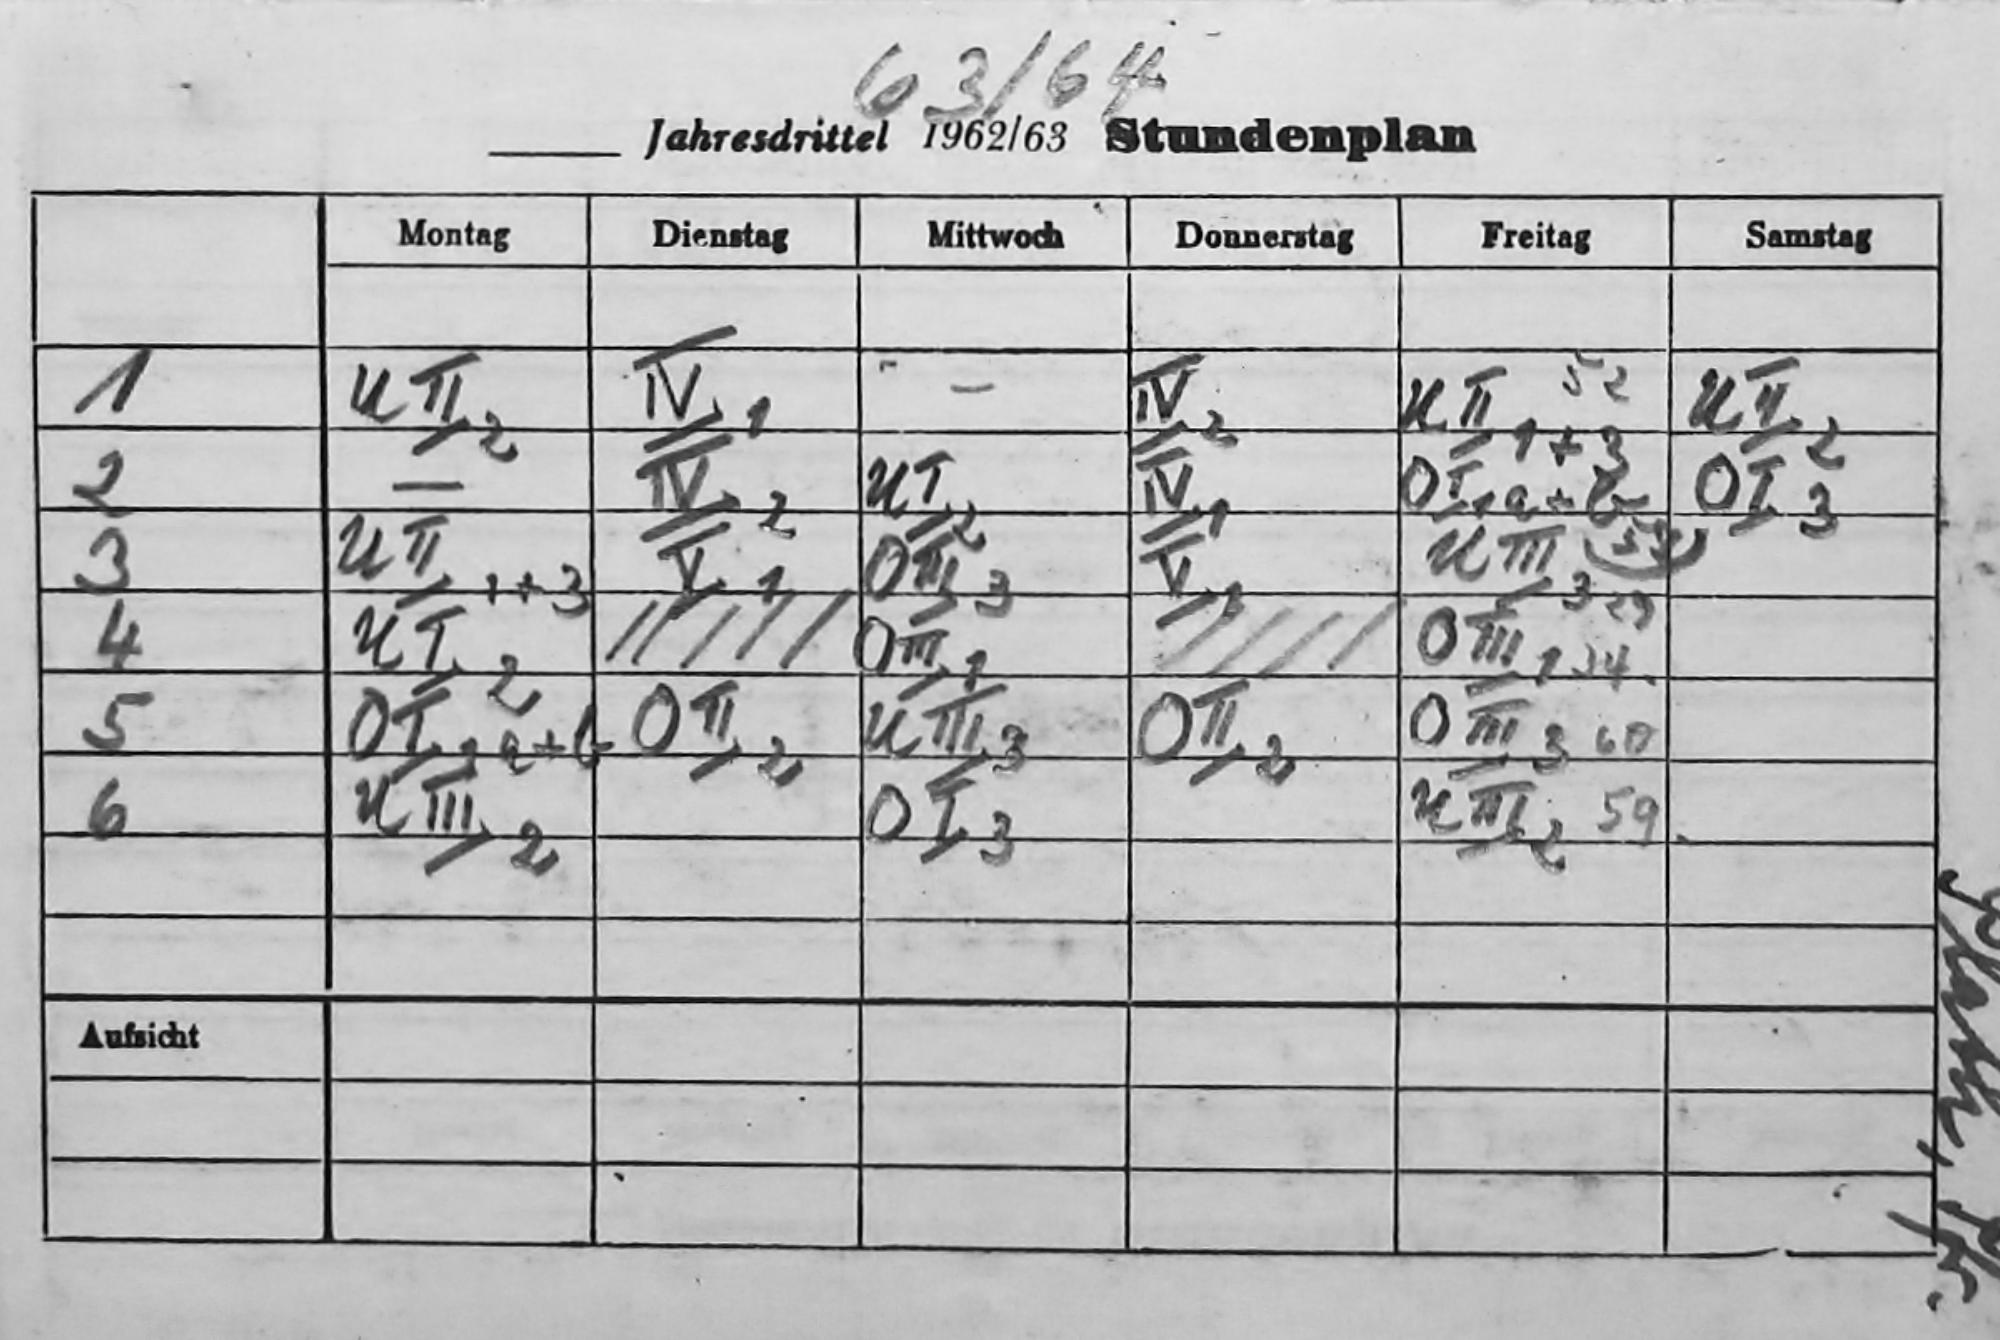 63/64
Jahresdrittel 1962/63 Stundenplan
Montag Dienstag Mittwoch Donnerstag Freitag Samstag
1 UII2 IV1 – IV2 UII1+3 52 UII2
2 — IV2 UI2 IV1 OI1a+b OI3
3 UII1+3 V1 OIII3 V1 UIII3
4 UI2 ///// OIII1 //// OIII1 34.
5 OI1a+b OII2 UIII3 OII2 OIII3 60
6 UIII2 OI3 UIII2 59.
Aufsicht